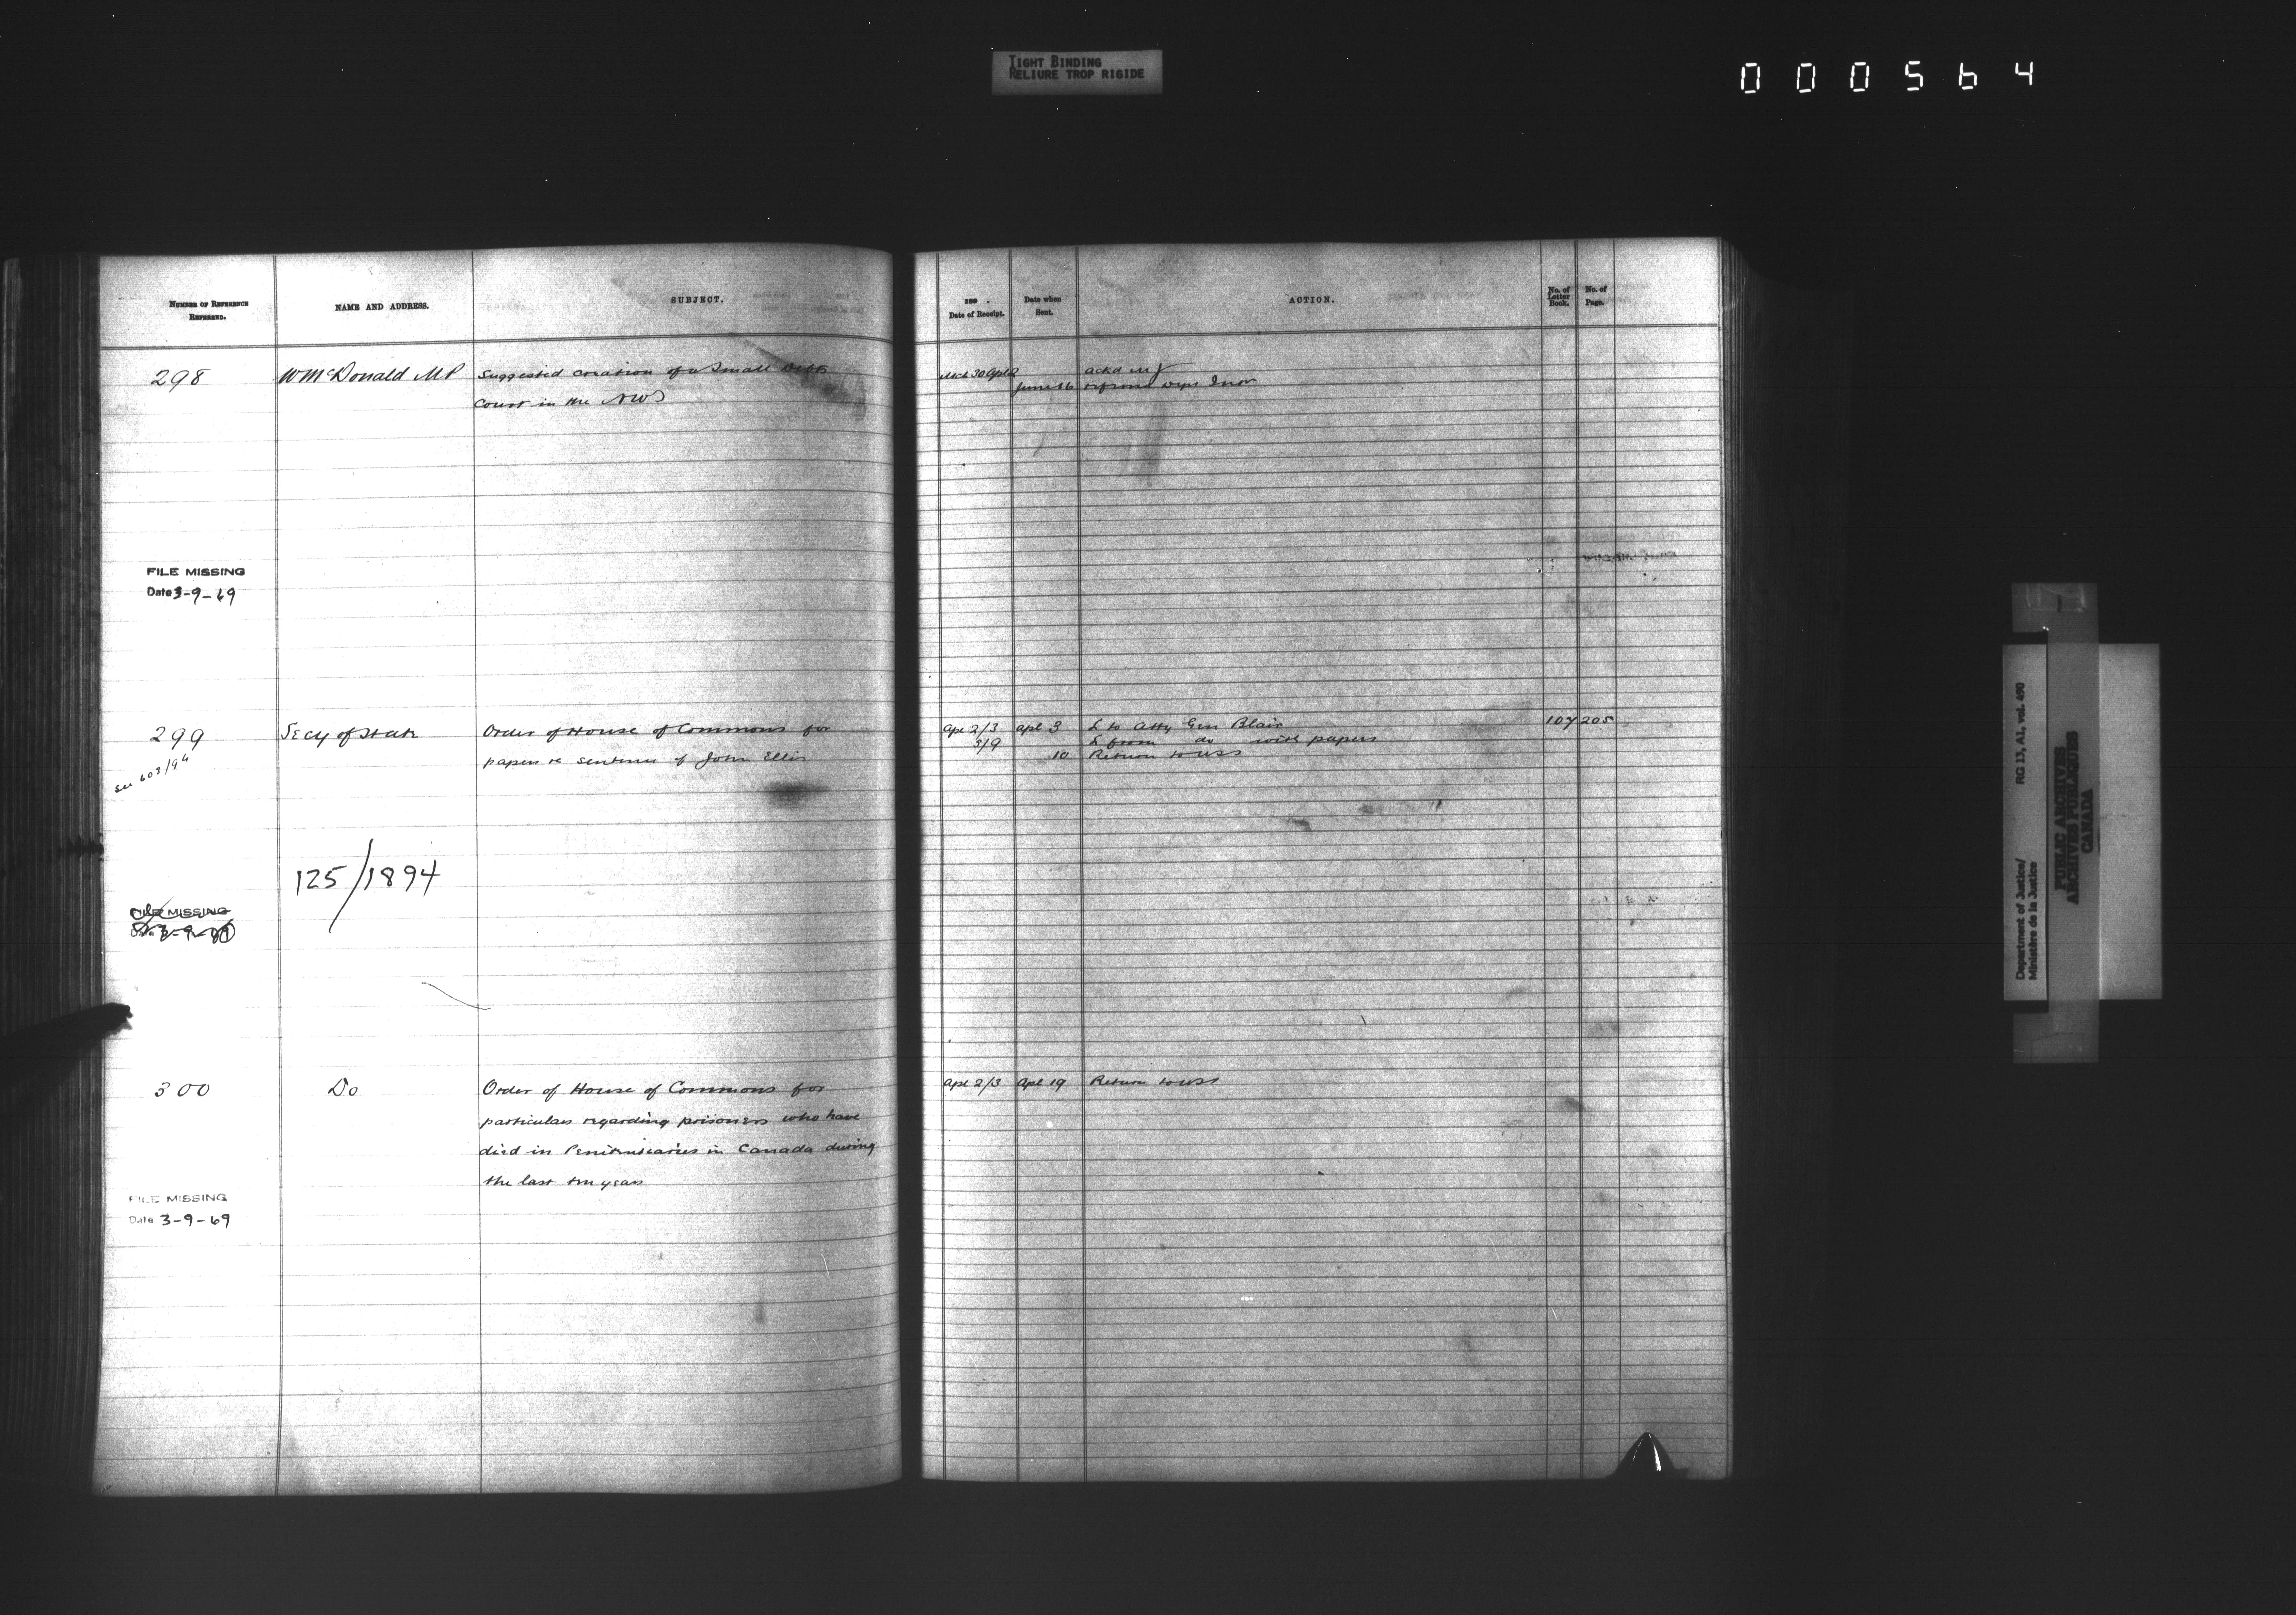 TIGHT BINDING
RELIURE TROP RIGIDE
000564
NUMBER OF REFERENCE REFERRED.
NAME AND ADDRESS.
SUBJECT.
189 .
Date of Receipt.
Date when Sent.
ACTION.
No. of Letter Book.
No. of Page.
298
W McDonald MP
Suggested creation of a Small Debts
Court in the NWT
Mch 30 Apl 2
ackd
June 16
FILE MISSING
Date 3-9-69
299
Secy of State
Order of House of Commons for
papers re sentence of John Ellis
see 603/94
Apl 2/3 Apl 3 L to Atty Gen Blair 107 205
3/9 L from do with papers
10 Return to USS
125/1894
FILE MISSING
Date 3-9-69
300
Do
Order of House of Commons for
particulars regarding prisoners who have
died in Penitentiaries in Canada during
the last ten years
Apl 2/3 Apl 19 Return to USS
FILE MISSING
Date 3-9-69
Department of Justice/
Ministère de la Justice
RG 13, A1, vol. 490
PUBLIC ARCHIVES
ARCHIVES PUBLIQUES
CANADA